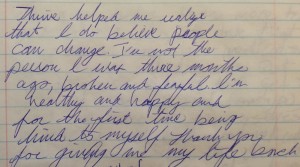 Thrive helped me realize
that I do believe people
can change I'm not the
person I was three months
ago, broken and fearful I'm
healthy and happy and
for the first time being
kind to myself Thank you
for giving me my life back